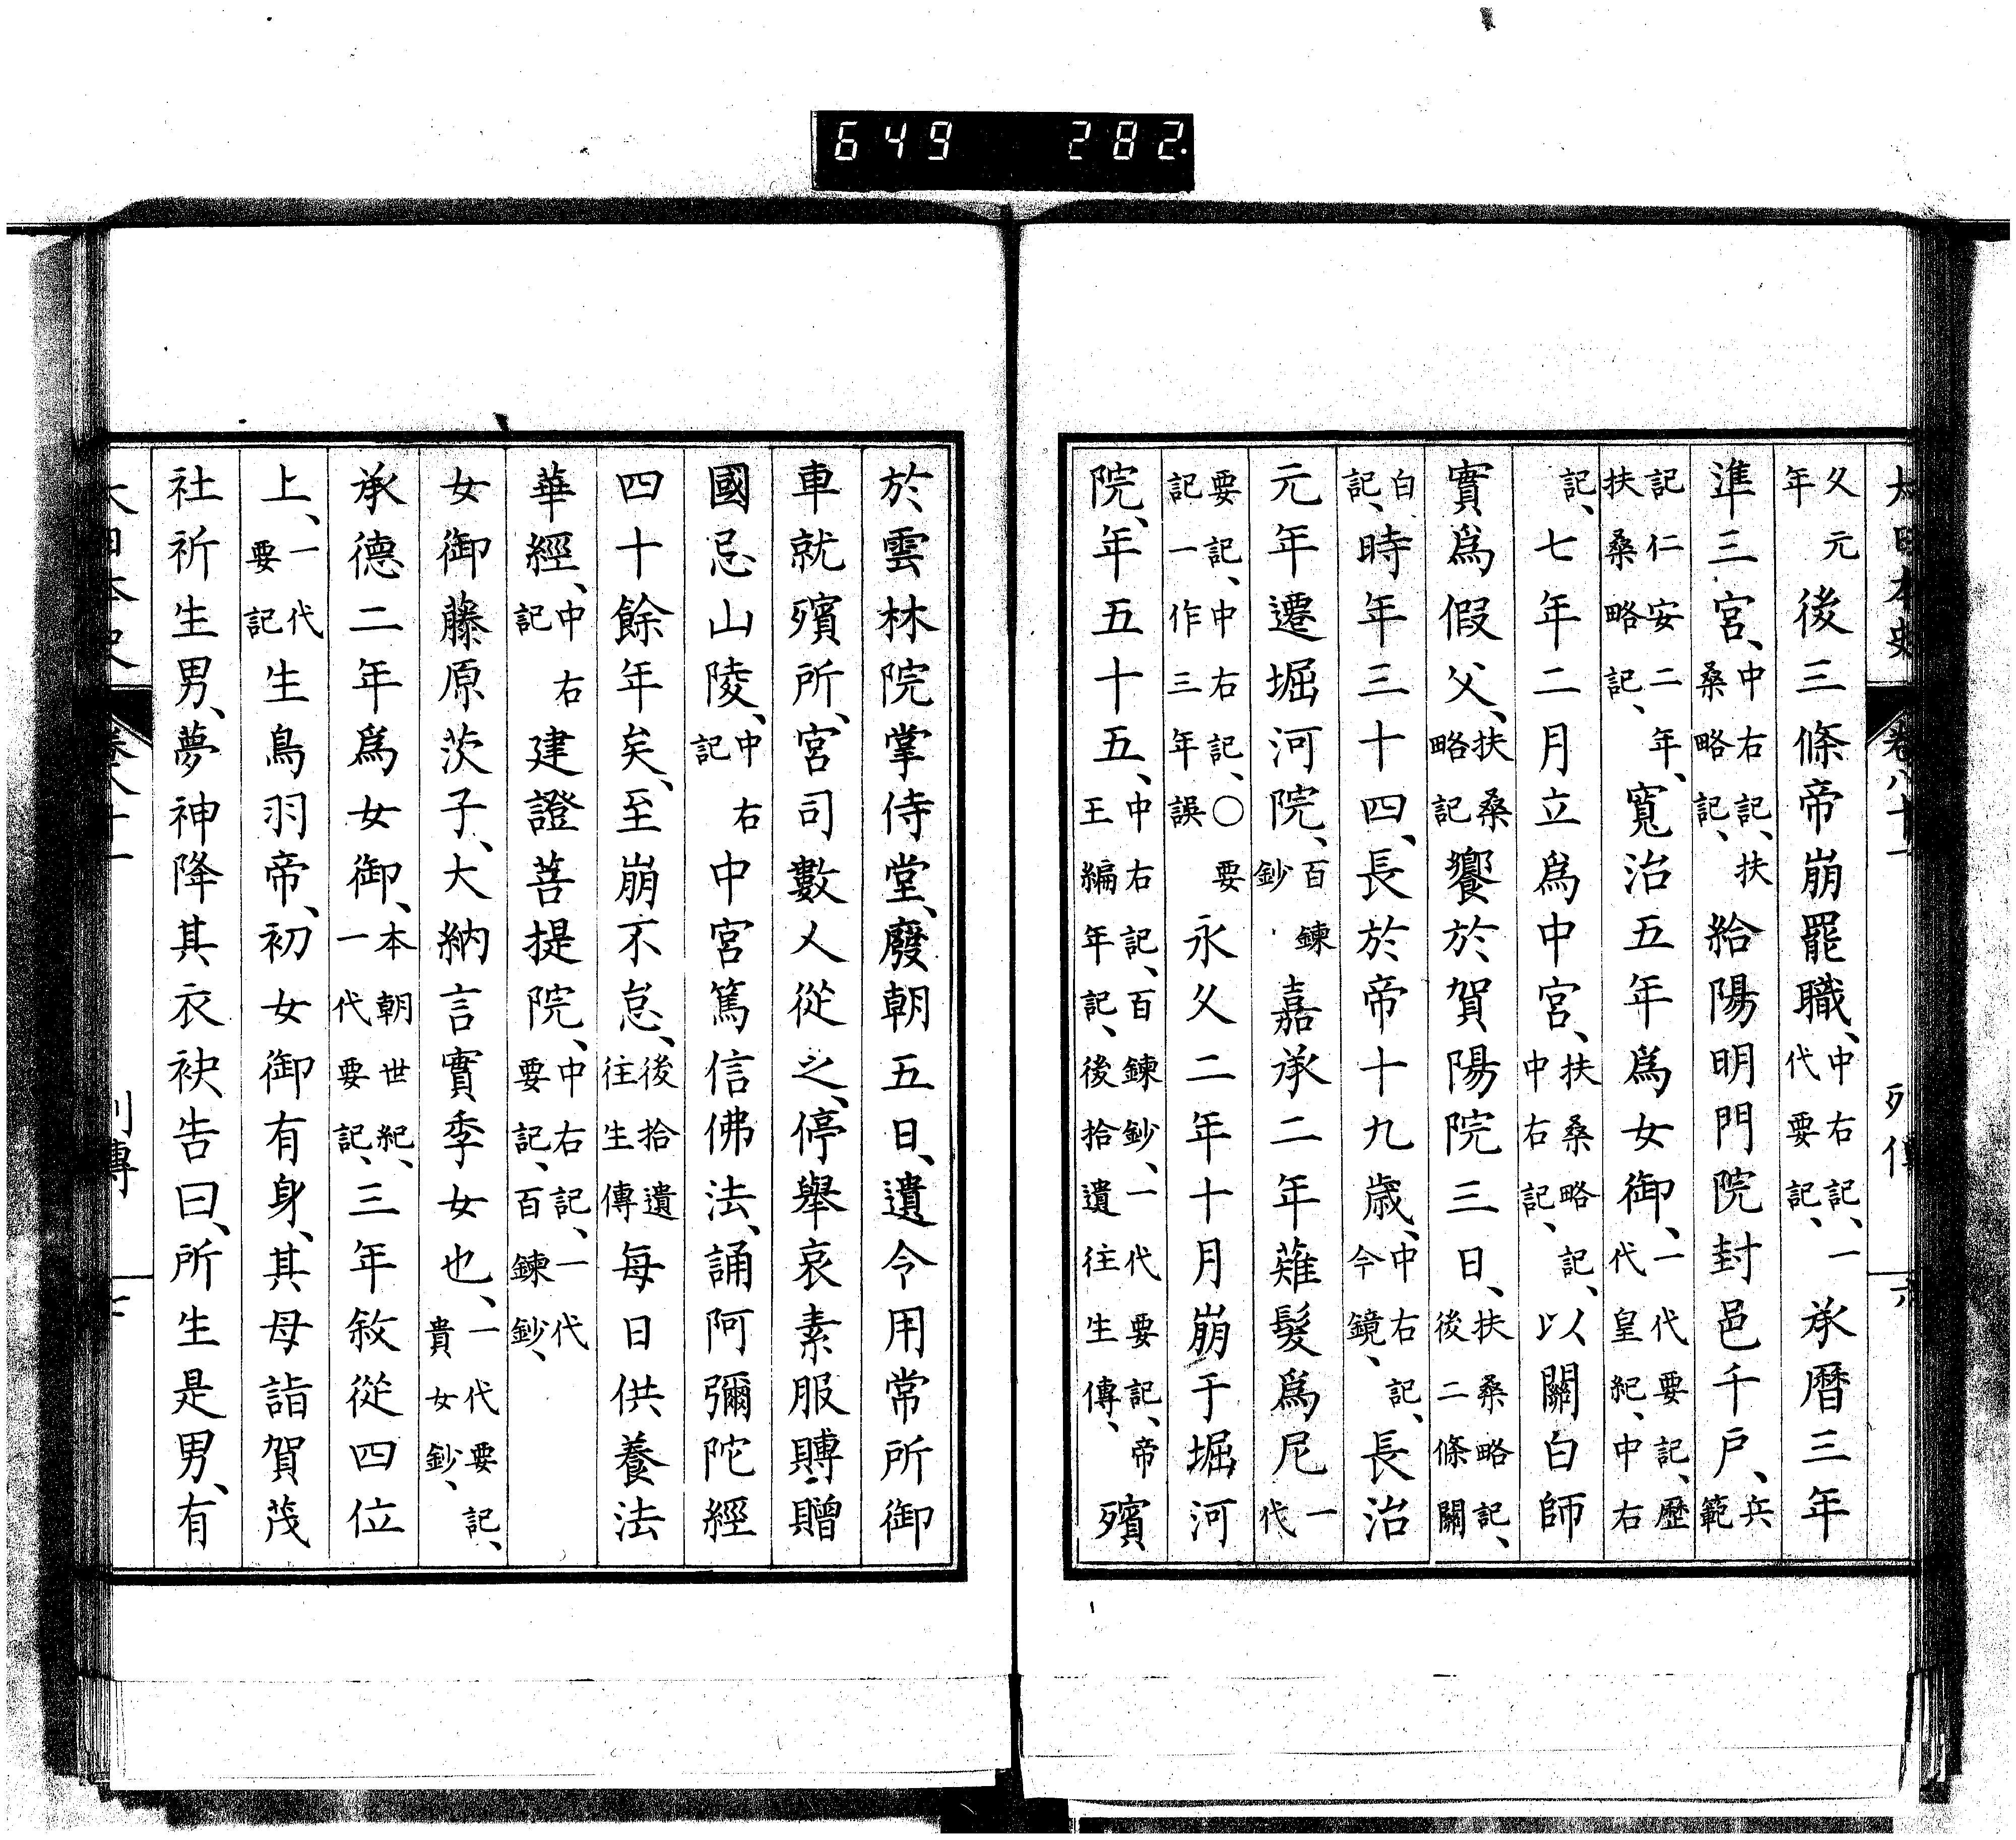 649 282.
大日本史 卷八十一 列傳 六
久元年後三條帝崩罷職、中右記、一代要記、承曆三年
準三宮、中右記、扶桑略記、給陽明門院封邑千戶、兵範
記仁安二年、扶桑略記、寬治五年爲女御、一代要記、歷代皇紀、中右
記、七年二月立爲中宮、扶桑略記、中右記、以關白師
實爲假父、扶桑略記饗於賀陽院三日、扶桑略記、後二條關
白記、時年三十四、長於帝十九歲、中右記、今鏡、長治
元年遷堀河院、百鍊鈔嘉承二年薙髮爲尼一代
要記、中右記、○要記一作三年誤永久二年十月崩于堀河
院、年五十五、中右記、百鍊鈔、一代要記、帝王編年記、後拾遺往生傳、殯
於雲林院掌侍堂、廢朝五日、遺令用常所御
車就殯所、宮司數人從之、停舉哀素服賻贈
國忌山陵、中右記中宮篤信佛法、誦阿彌陀經
四十餘年矣、至崩不怠、後拾遺往生傳每日供養法
華經、中右記建證菩提院、中右記、一代要記、百鍊鈔、
女御藤原茨子、大納言實季女也、一代要記、貴女鈔、
承德二年爲女御、本朝世紀、一代要記、三年敘從四位
上、一代要記生鳥羽帝、初女御有身、其母詣賀茂
社祈生男、夢神降其衣袂告曰、所生是男、有
大日本史 卷八十一 列傳 七